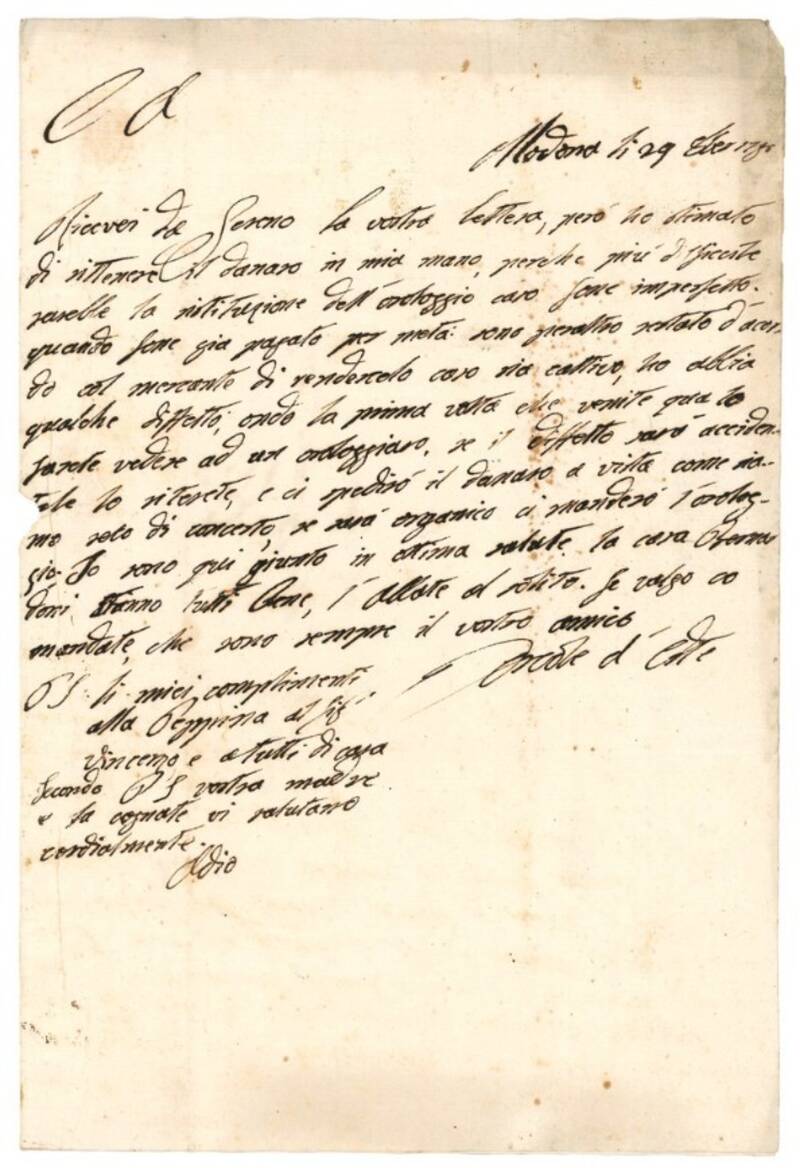 C A
Modena li 29
Ricevei da Sereno la vostra lettera, però ho stimato
di rittenere il danaro in mia mano, perche più difficile
sarebbe la ristituzione dell'orologgio caso fosse imperfetto.
quando fosse gia pagato per metà: sono peraltro restato d'acor-
do col mercante di rendercelo caso sia cattivo, ho abbia
qualche diffetto; ondo la prima volta che venite qua lo
farete vedere ad un orologgiaro, se il diffetto sarà acciden-
tale lo riterete, e ci spedirò il danaro a vista come sia-
mo solo di concerto, se sarà organico ci manderò l'orolog-
gio. Io sono qui giunto in ottima salute, la casa
doni stanno tutti bene, l'Abbate al solito. Se valgo co
mandate, che sono sempre il vostro amico
Ercole d'Este
PS. li miei complimenti
alla Peppina al Sig.
Vincenzo e a tutti di casa
Secondo PS vostra madre
e la cognate vi salutano
cordialmente.
Adio